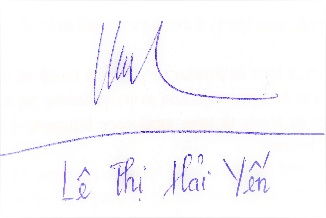 Lê Thị Hải Yến